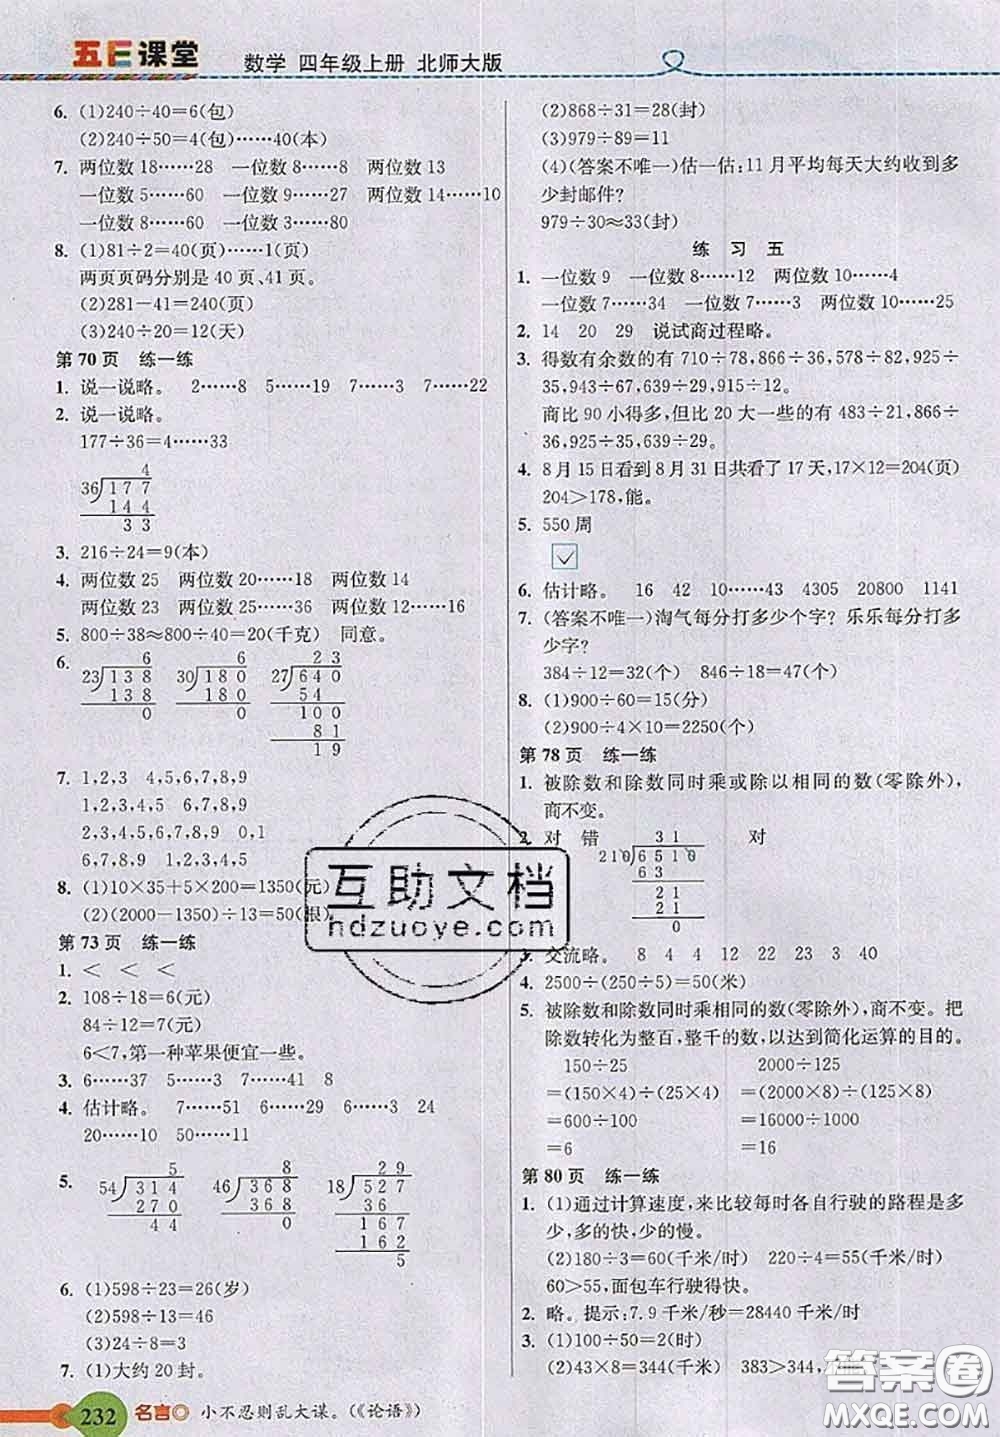 五E课堂 数学 四年级上册 北师大版
6. (1)240÷40=6(包)
(2)240÷50=4(包)……40(本)
7. 两位数 18……28 一位数 8……8 两位数 13
一位数 5……60 一位数 9……27 两位数 14……10
一位数 8……60 一位数 3……60
8. (1)81÷2=40(页)……1(页)
两页页码分别是 40 页、41 页。
(2)281-41=240(页)
(3)240÷20=12(天)
第 70 页 练一练
1. 说一说略。 2……8 5……19 7……3 7……22
2. 说一说略。
177÷36=4……33
4
36 177
144
33
3. 216÷24=9(本)
4. 两位数 25 两位数 20……18 两位数 14
两位数 23 两位数 20……8 两位数 12……16
5. 800÷38≈800÷40=20(千克) 同意。
6. 6 6 23
23 138 30 180 27 640
138 180 54
0 0 100
81
19
7. 1,2,3 4,5,6,7,8,9
1,2,3,4,5 6,7,8,9
2,3,4,5,6,7,8,9 0,1
6,7,8,9 1,2,3,4,5
8. (1)10×35+5×200=1350(元)
(2)(2000-1350)÷13=50(根)
第 73 页 练一练
1. < < <
2. 108÷18=6(元)
84÷12=7(元)
6<7,第一种苹果便宜一些。
3. 6……37 5……3 7……41 8
4. 估计略。 7……51 6……3 24
20……10 50……11
5. 5 8 29
54 314 46 368 18 527
270 368 36
44 0 167
162
5
6. (1)598÷23=26(岁)
(2)598÷13=46
(3)24÷8=3
7. (1)大约 20 封。
232 名言 小不忍则乱大谋。(《论语》)
(2)868÷31=28(封)
(3)979÷89=11
(4)(答案不唯一)估一估:11 月平均每天大约收到多
少封邮件?
979÷30≈33(封)
练 习 五
1. 一位数 9 一位数 8……12 两位数 10……4
一位数 7……34 一位数 7……3 两位数 10……25
2. 14 20 29 说试商过程略。
3. 得数有余数的有 710÷78,866÷36,578÷82,925÷
35,943÷67,639÷29,915÷12。
商比 90 小得多,但比 20 大一些的有 483÷21,866÷
36,925÷35,639÷29。
4. 8 月 15 日看到 8 月 31 日共看了 17 天,17×12=204(页)
204>178,能。
5. 550 周
✓
6. 估计略。 16 42 10……43 4305 20800 1141
7. (答案不唯一)淘气每分打多少个字? 乐乐每分打多
少字?
384÷12=32(个) 846÷18=47(个)
8. (1)900÷60=15(分)
(2)900÷4×10=2250(个)
第 78 页 练一练
1. 被除数和除数同时乘或除以相同的数(零除外),
商不变。
2. 对 错 31 对
210 6510
63
21
21
0
3. 交流略。 8 4 4 12 22 23 3 40
4. 2500÷(250÷5)=50(米)
5. 被除数和除数同时乘相同的数(零除外),商不变。把
除数转化为整百,整千的数,以达到简化运算的目的。
150÷25 2000÷125
=(150×4)÷(25×4) =(2000×8)÷(125×8)
=600÷100 =16000÷1000
=6 =16
第 80 页 练一练
1. (1)通过计算速度,来比较每时各自行驶的路程是多
少,多的快,少的慢。
(2)180÷3=60(千米/时) 220÷4=55(千米/时)
60>55,面包车行驶得快。
2. 略。提示:7.9 千米/秒=28440 千米/时
3. (1)100÷50=2(时)
(2)43×8=344(千米) 383>344,
互助文档
hdzuoye.com
答案圈
MXQE.COM